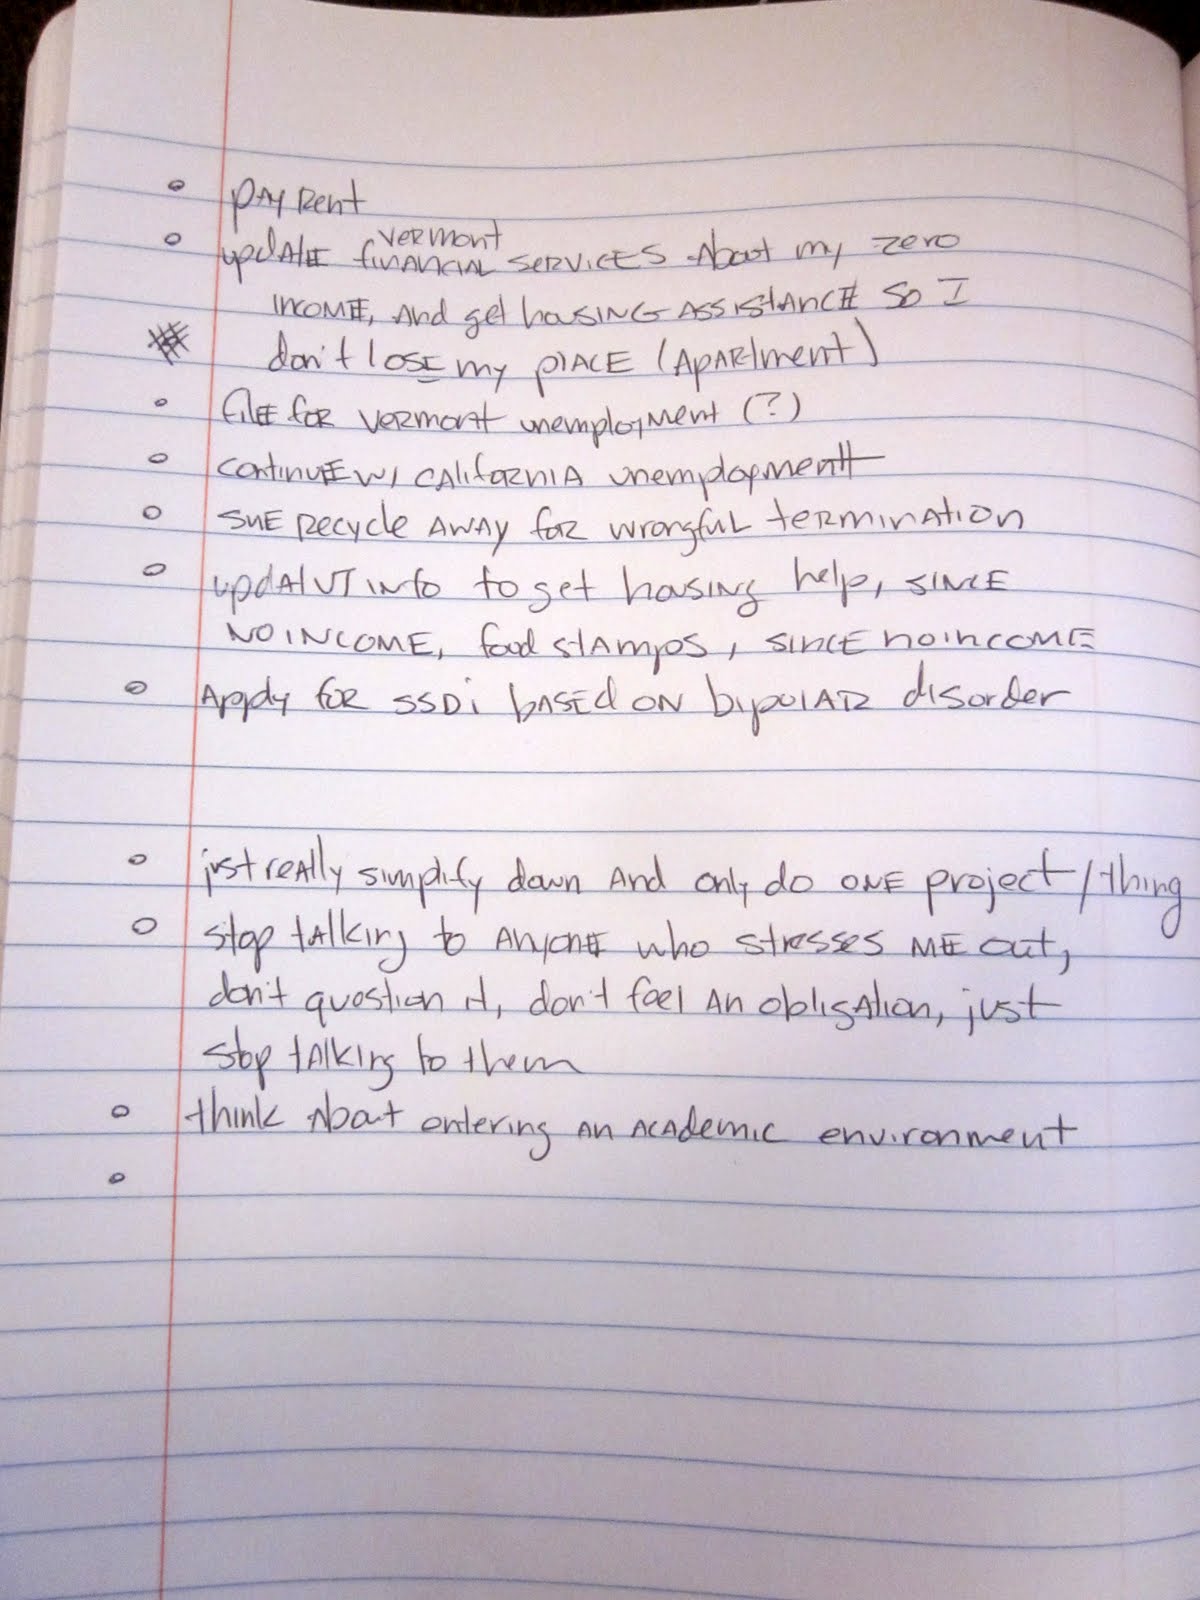 pay rent
vermont
update financial services about my zero
income, and get housing assistance so I
don't lose my place (apartment)
file for vermont unemployment (?)
continue w/ california unemployment
sue recycle away for wrongful termination
updat VT info to get housing help, since
no income, food stamps, since no income
Apply for SSDi based on bipolar disorder
just really simplify down and only do one project/thing
stop talking to anyone who stresses me out,
don't question it, don't feel an obligation, just
stop talking to them
think about entering an academic environment